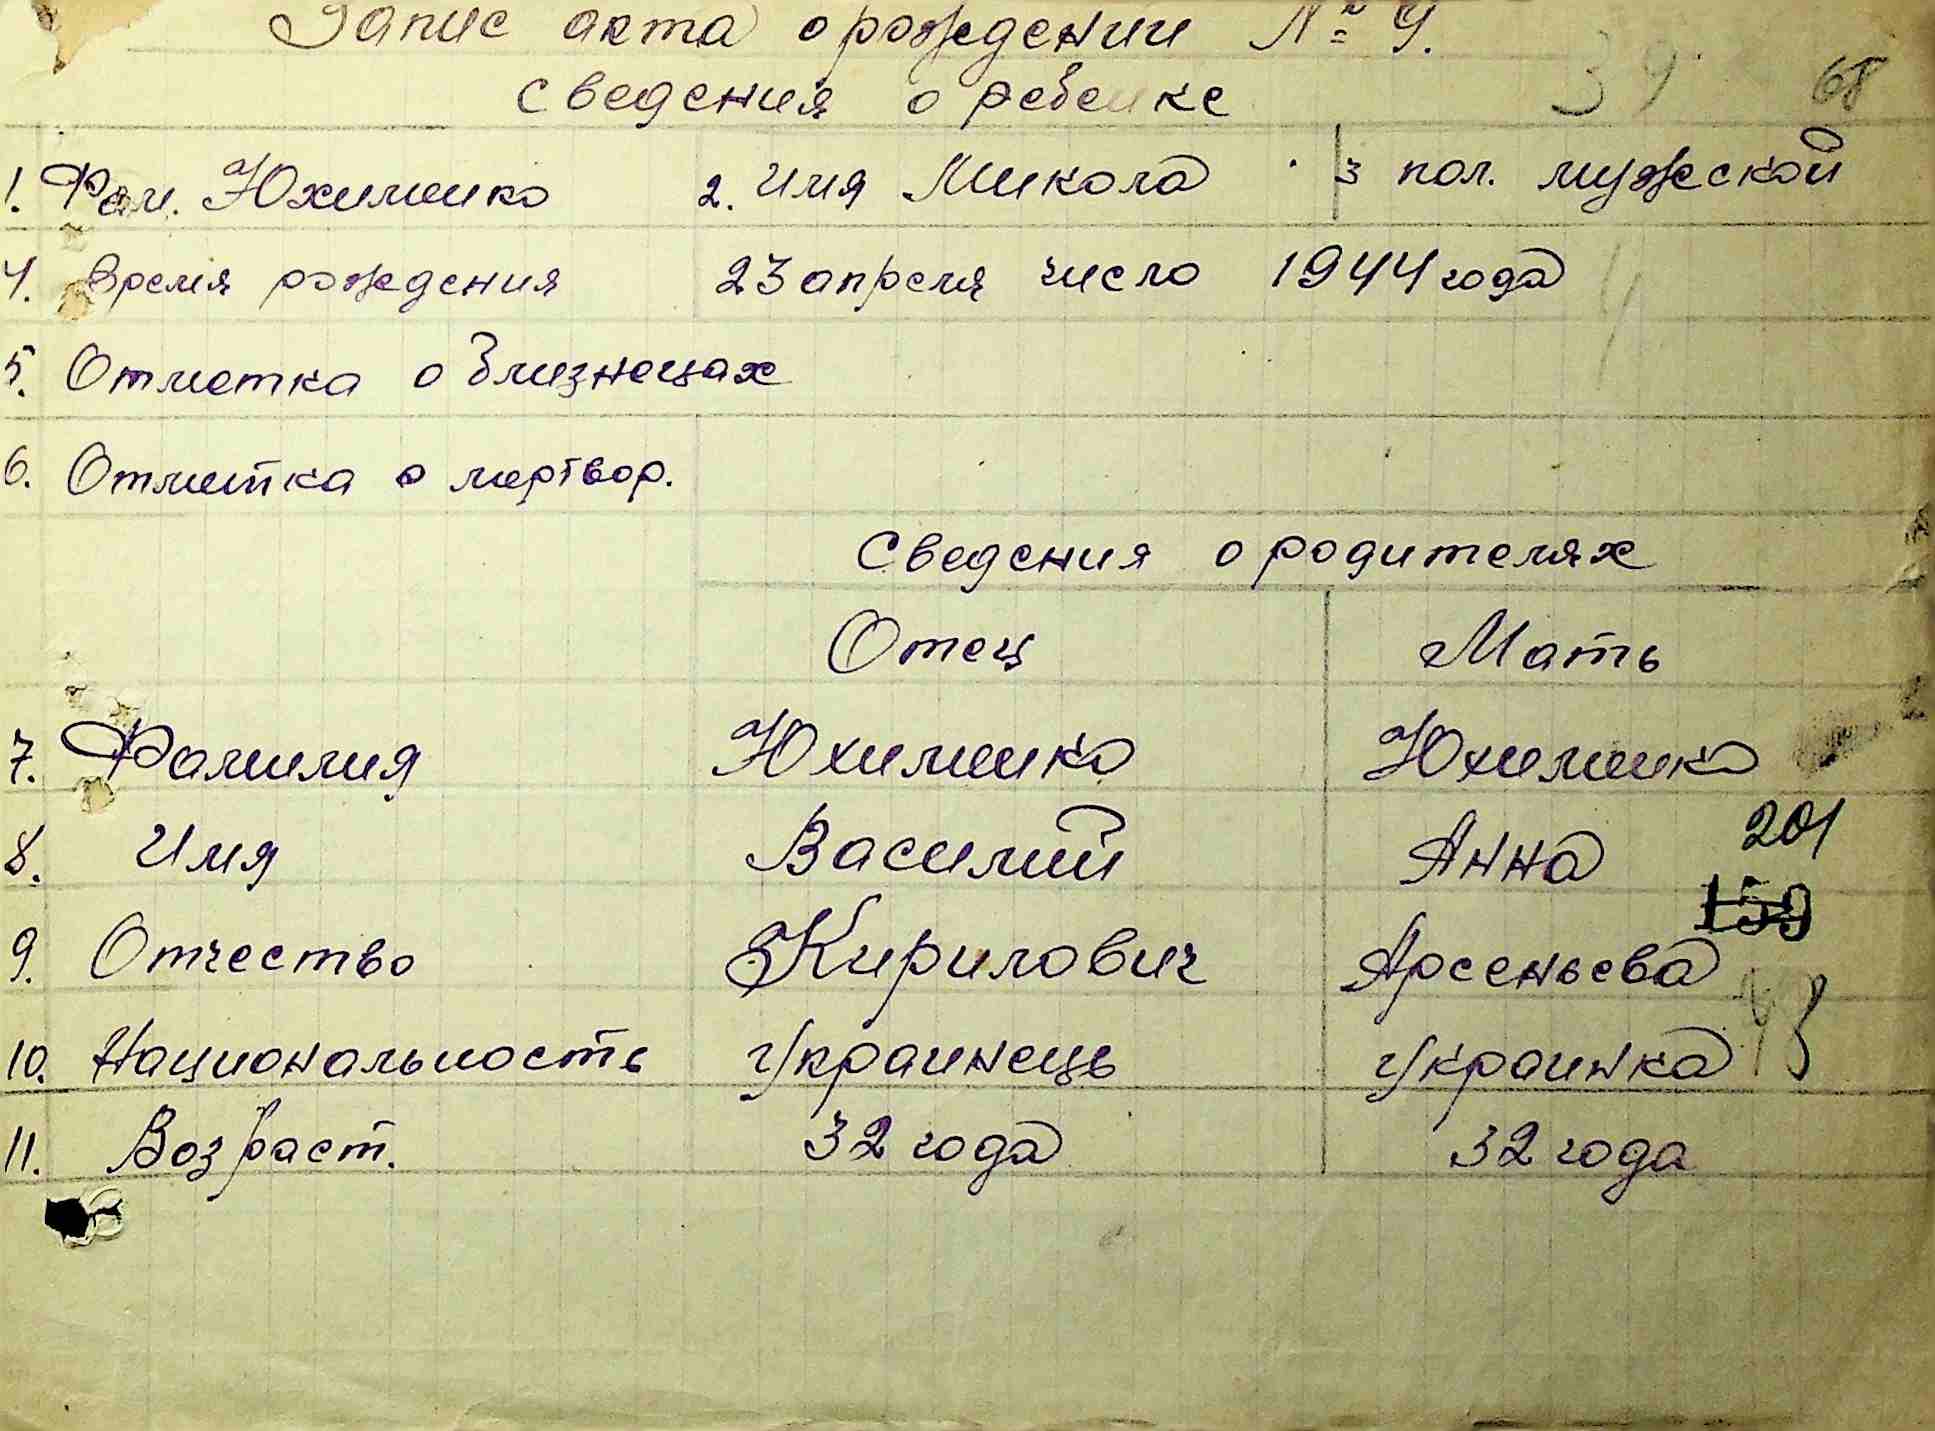 Запис акта о рождении № 9.
Сведения о ребенке
39 68
1. Фам. Юхименко 2. Имя Микола 3 пол. мужской
4. Время рождения 23 апреля число 1944 года
5. Отметка о близнецах
6. Отметка о мертвор.
Сведения о родителях
Отец Мать
7. Фамилия Юхименко Юхименко
8. Имя Василий Анна 201
159
9. Отчество Кирилович Арсеньева
10. Национальность Украинець Украинка
11. Возраст. 32 года 32 года